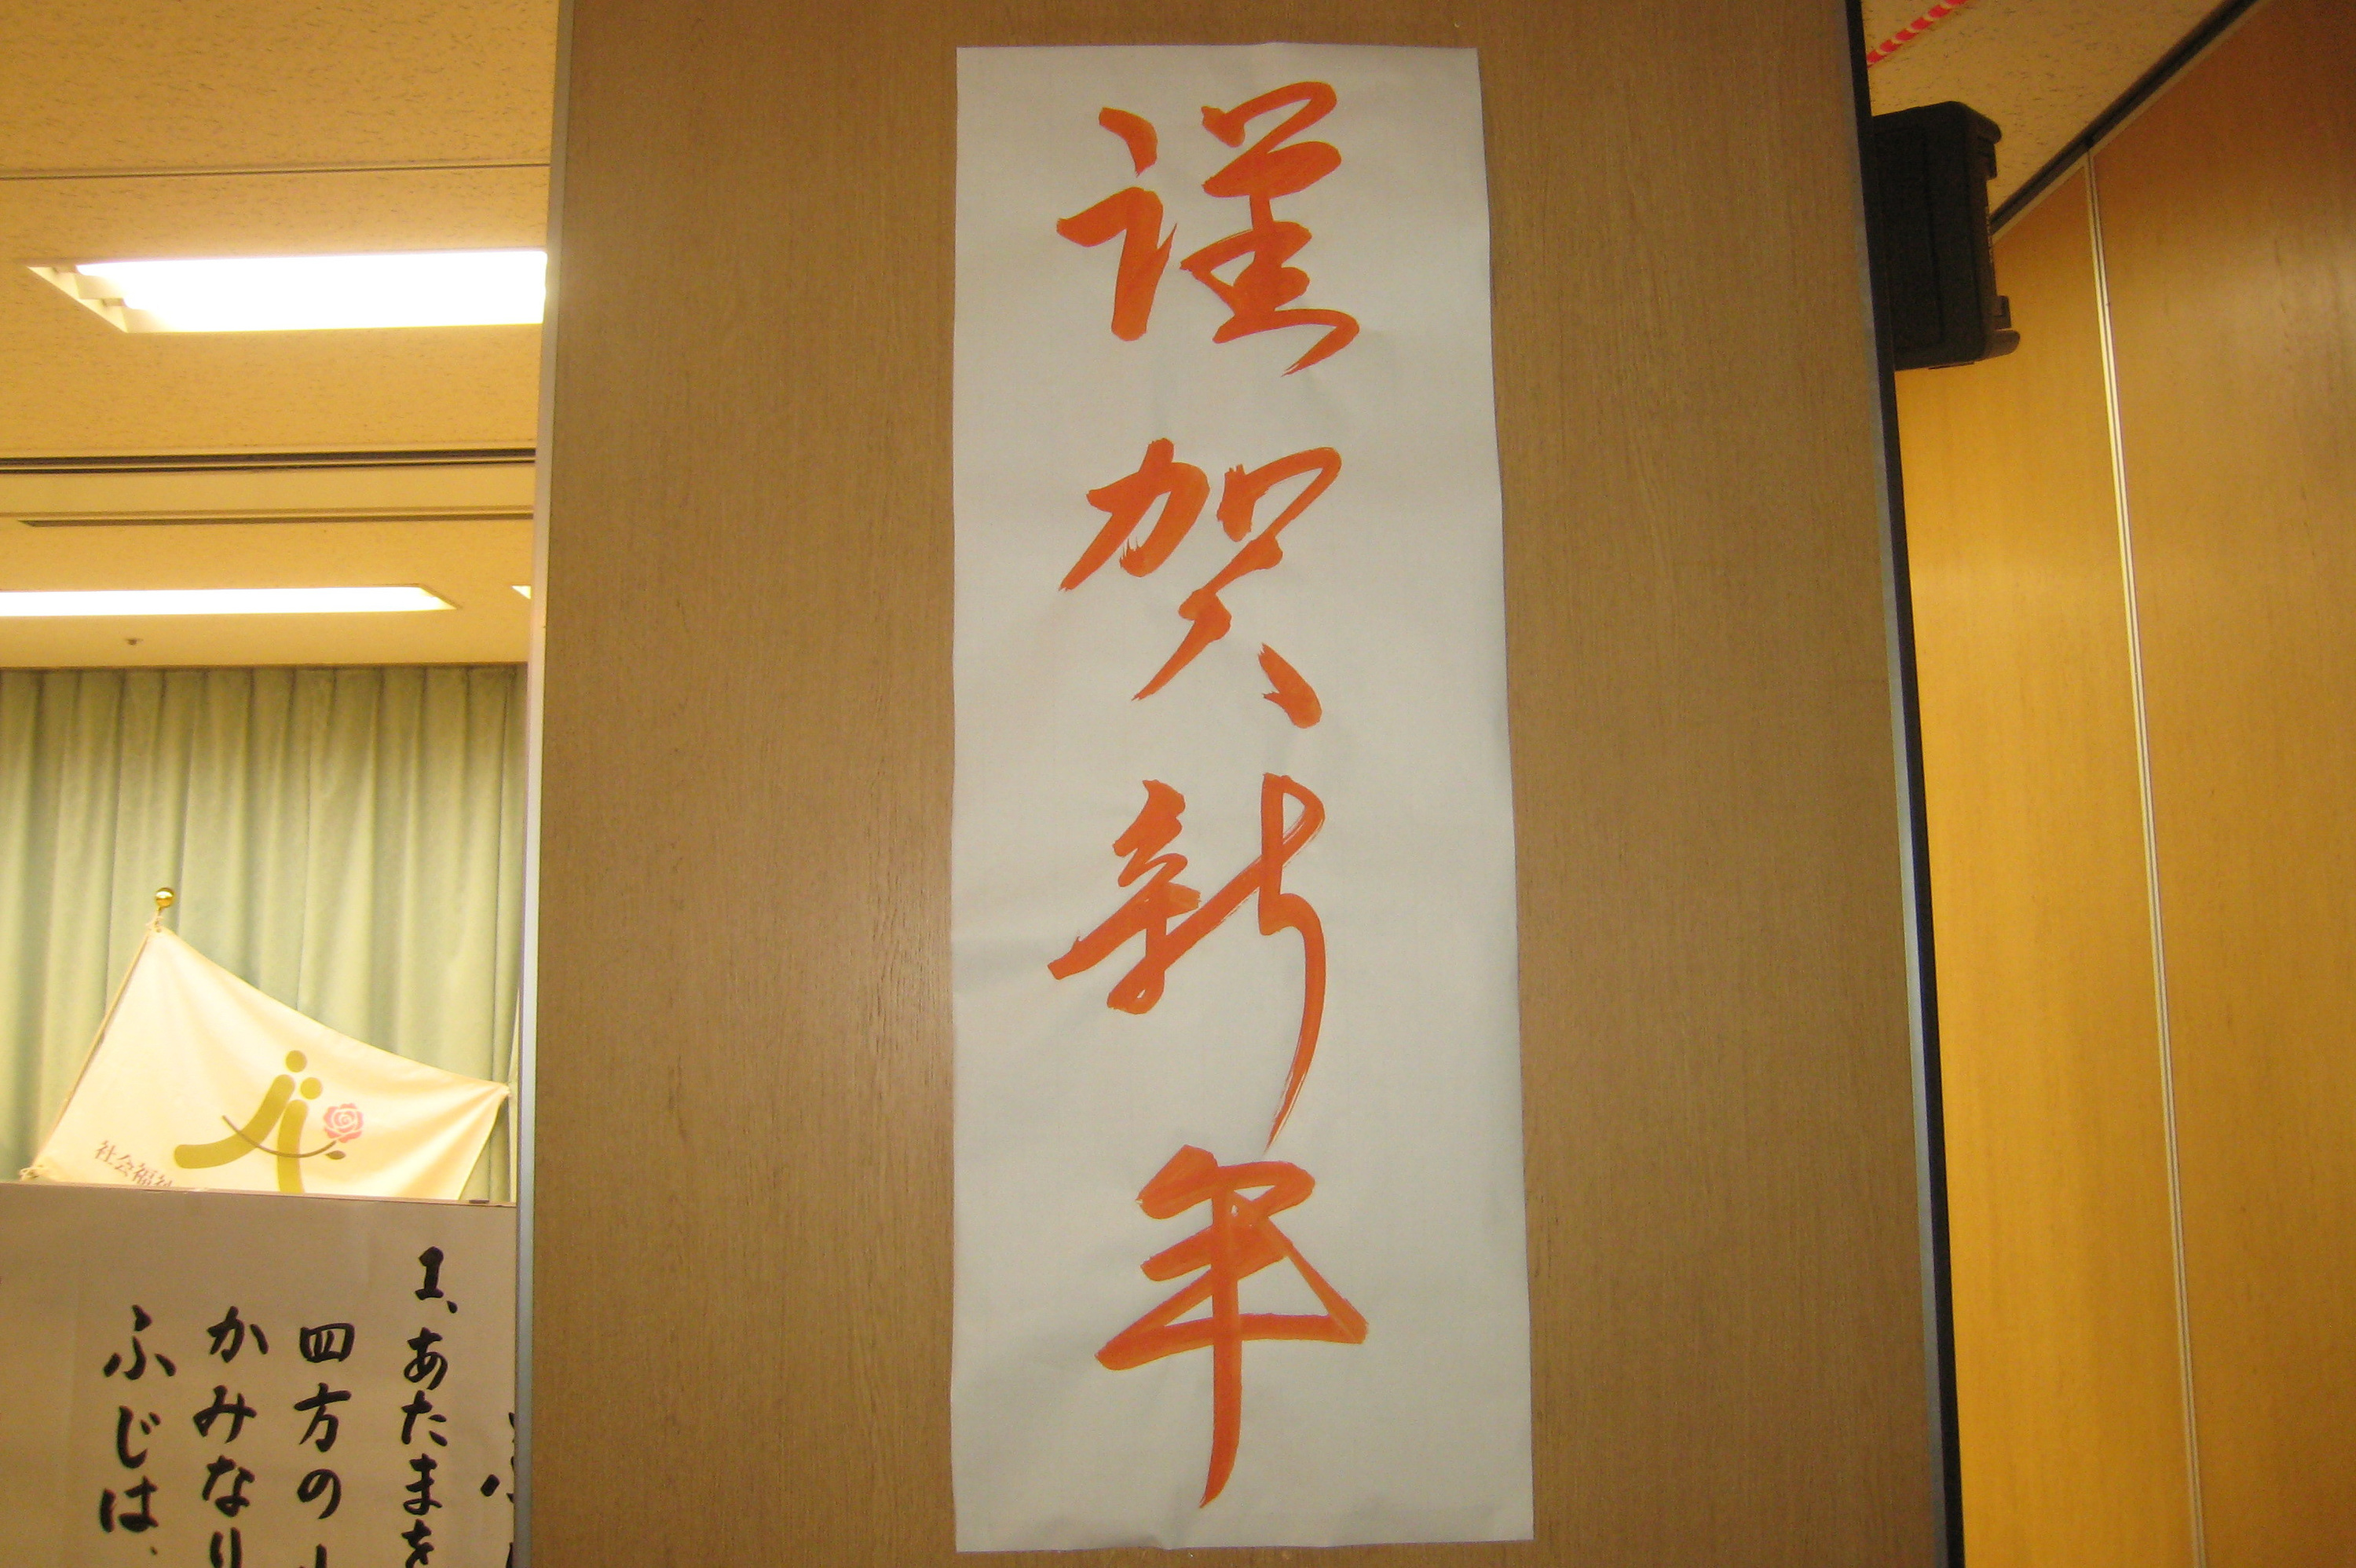 謹賀新年
社会福祉
1、あたまを
四方の
かみなり
ふじは、